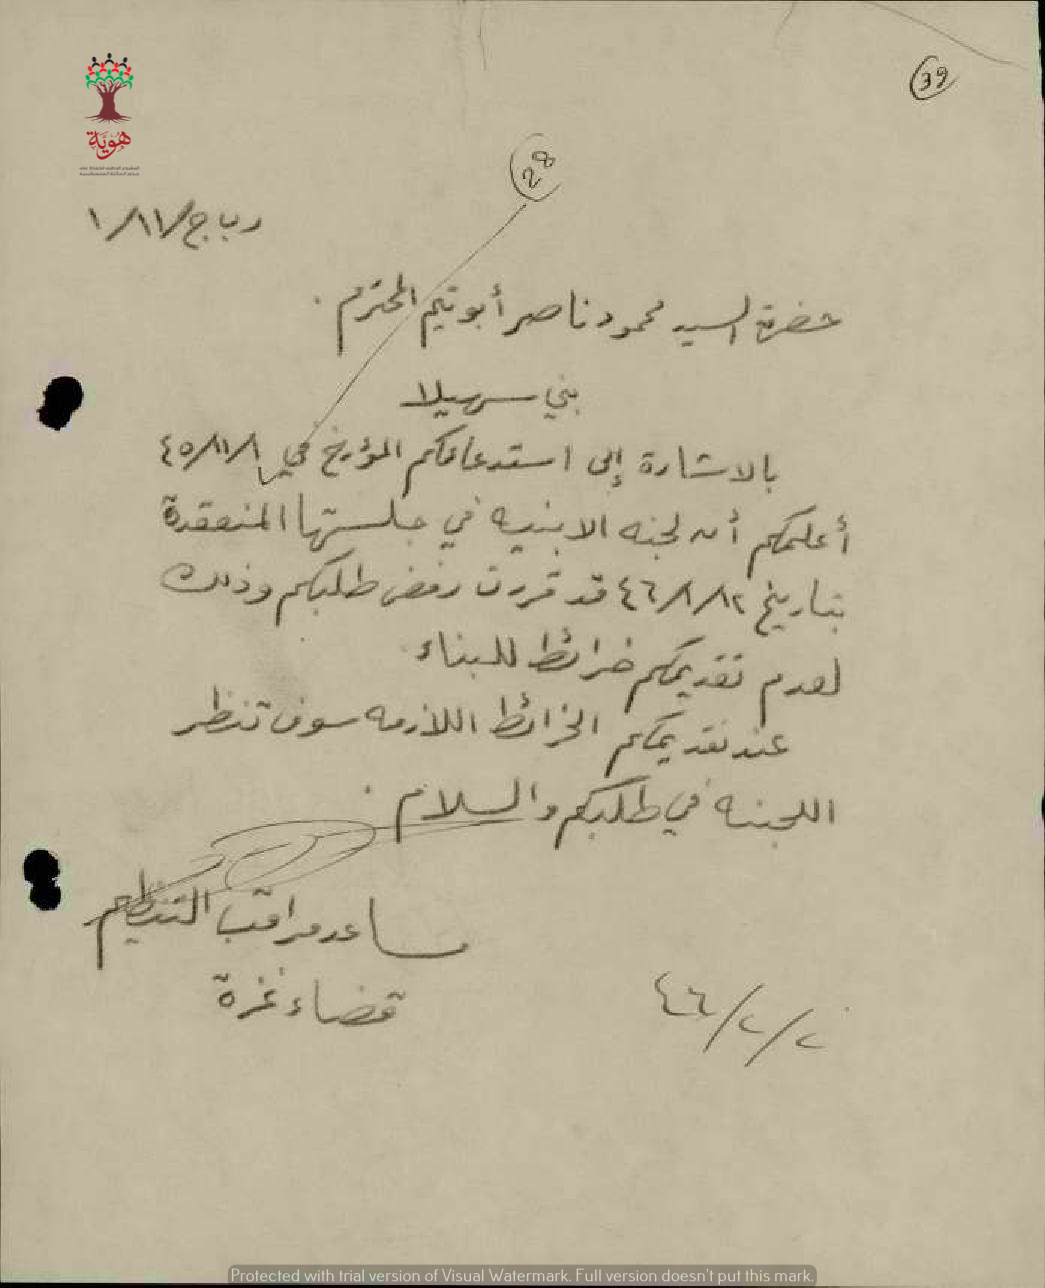 39
هوية
28
ر ب ج/١١/١
حضرة السيد محمود ناصر أبو تيم المحترم .
بني سهيلا
بالاشارة إلى استدعائكم المؤرخ في ٤٥/١١/٨
أعلمكم أن لجنه الابنيه في جلستها المنعقدة
بتاريخ ٤٦/١/١٢ قد قررت رفض طلبكم وذلك
لعدم تقديمكم خرائط للبناء .
عند تقديمكم الخرائط اللازمه سوف تنظر
اللجنه في طلبكم والسلام .
مساعد مراقب التنظيم
قضاء غزة
٤٦/٢/٢
Protected with trial version of Visual Watermark. Full version doesn't put this mark.